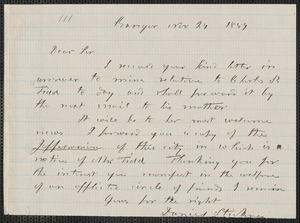 111
Bangor Nov 24 1859
Dear Sir
I received your kind letter in
answer to mine relative to Charles P.
Tidd to day and shall forward it by
the next mail to his mother.
It will be to her most welcome
news. I forward you a copy of the
Jeffersonian of this city in which is
notice of Mr Tidd Thanking you for
the interest you manifest in the welfare
of an afflicted circle of friends I remain
Yours for the right
Daniel